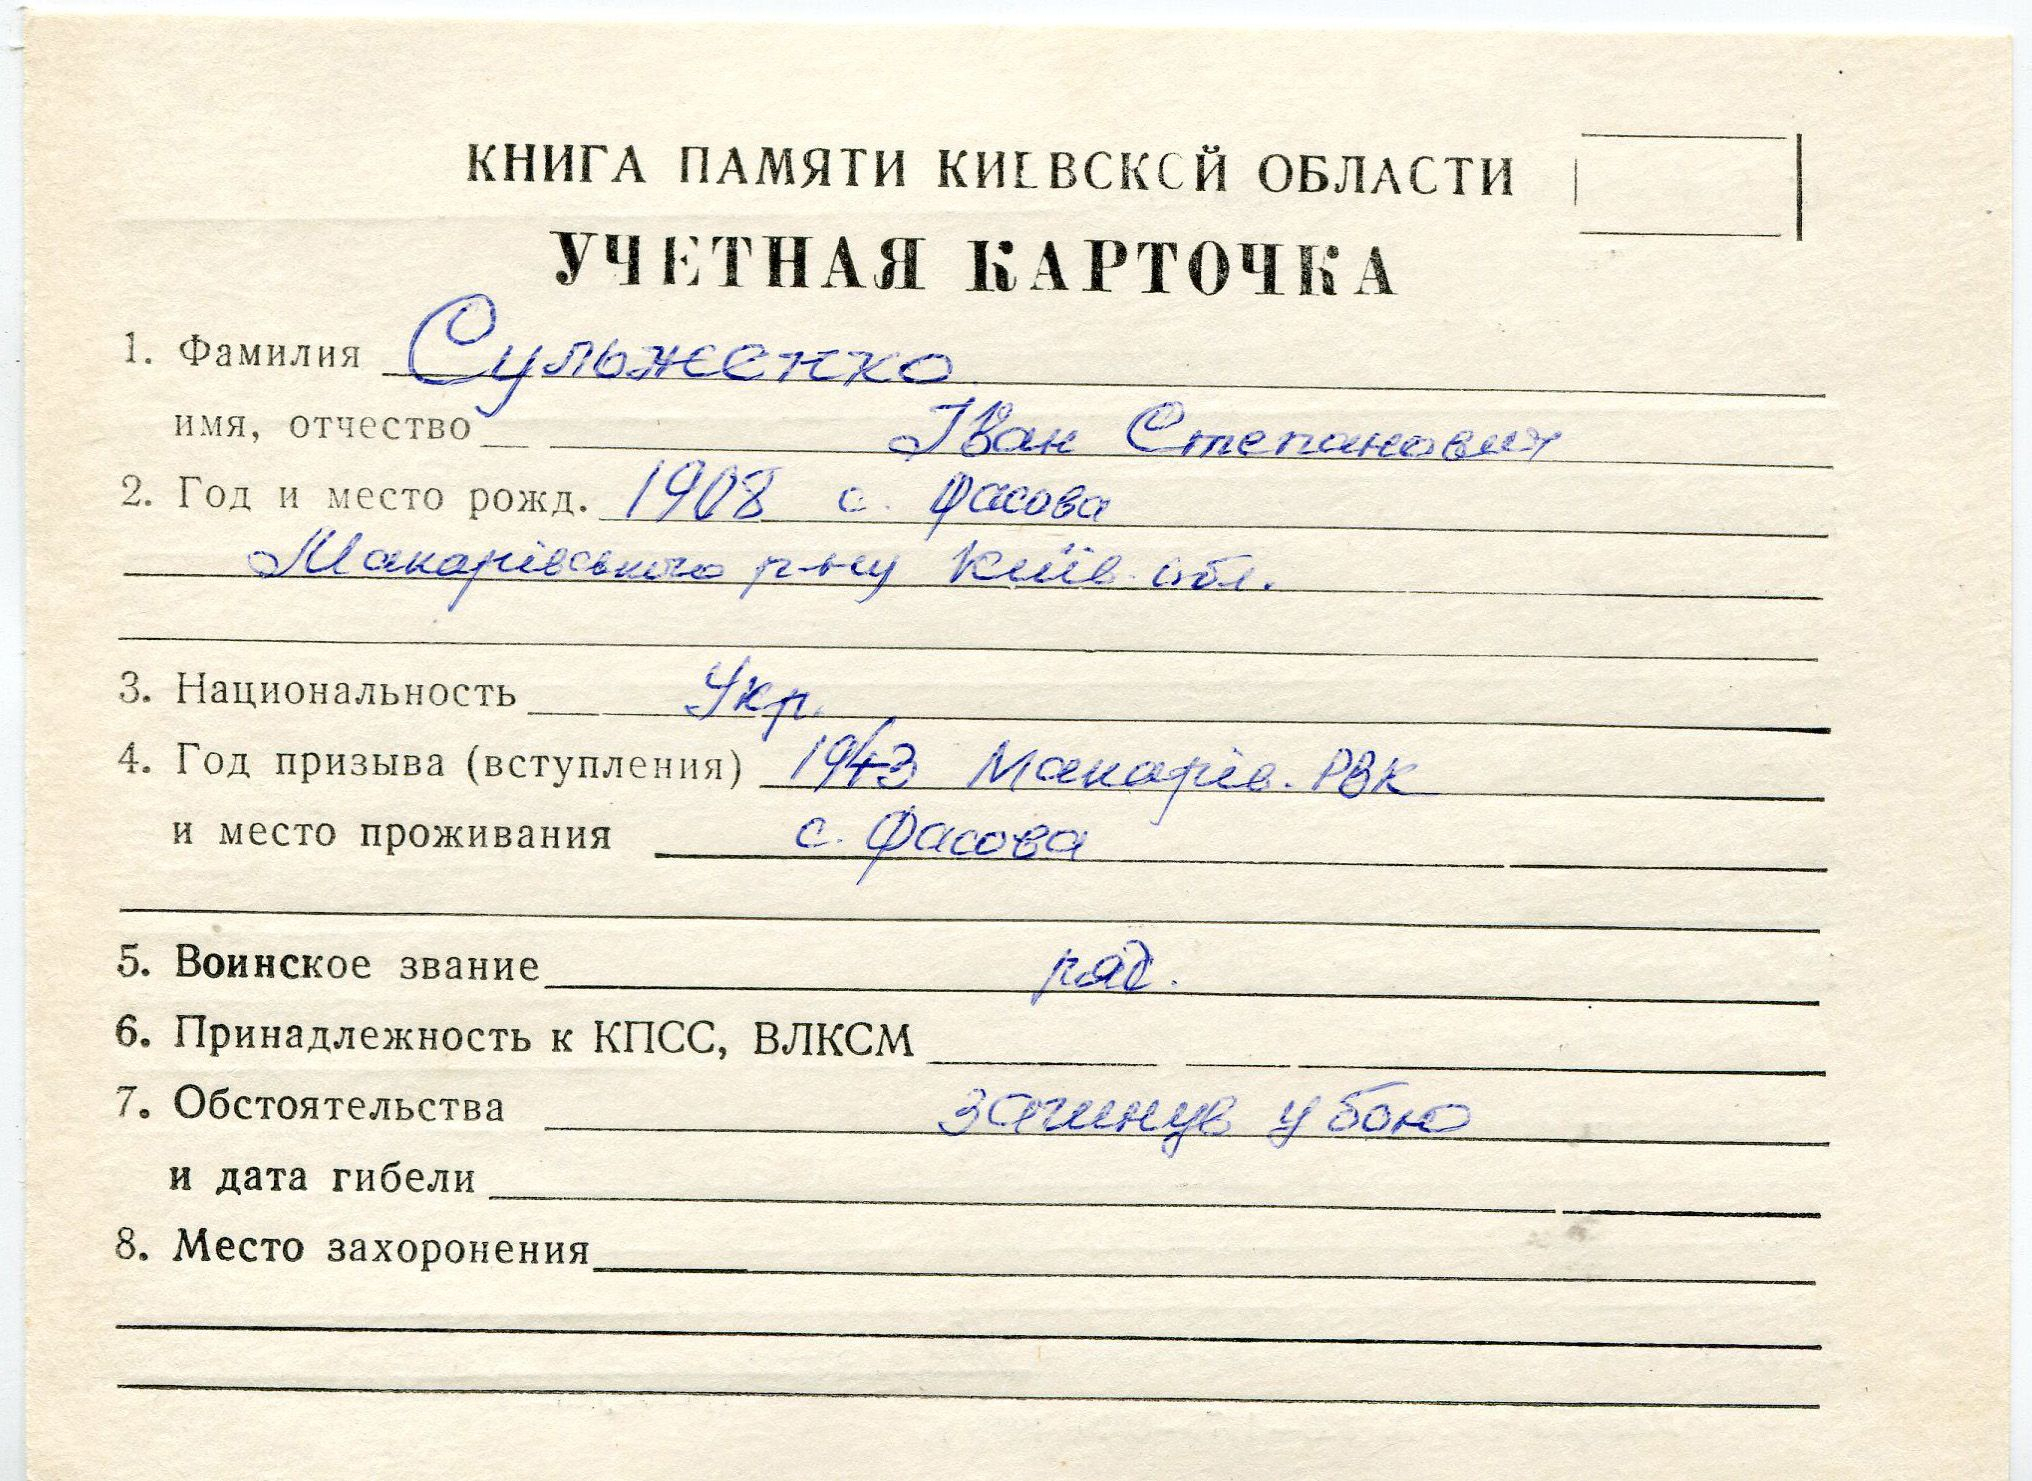 КНИГА ПАМЯТИ КИЕВСКОЙ ОБЛАСТИ
УЧЕТНАЯ КАРТОЧКА
1. Фамилия Сульженко
имя, отчество Іван Степанович
2. Год и место рожд. 1908 с. Фасова
Макарівського р-ну Київ. обл.
3. Национальность Укр.
4. Год призыва (вступления) 1943 Макарів. РВК
и место проживания с. Фасова
5. Воинское звание ряд.
6. Принадлежность к КПСС, ВЛКСМ
7. Обстоятельства загинув у бою
и дата гибели
8. Место захоронения